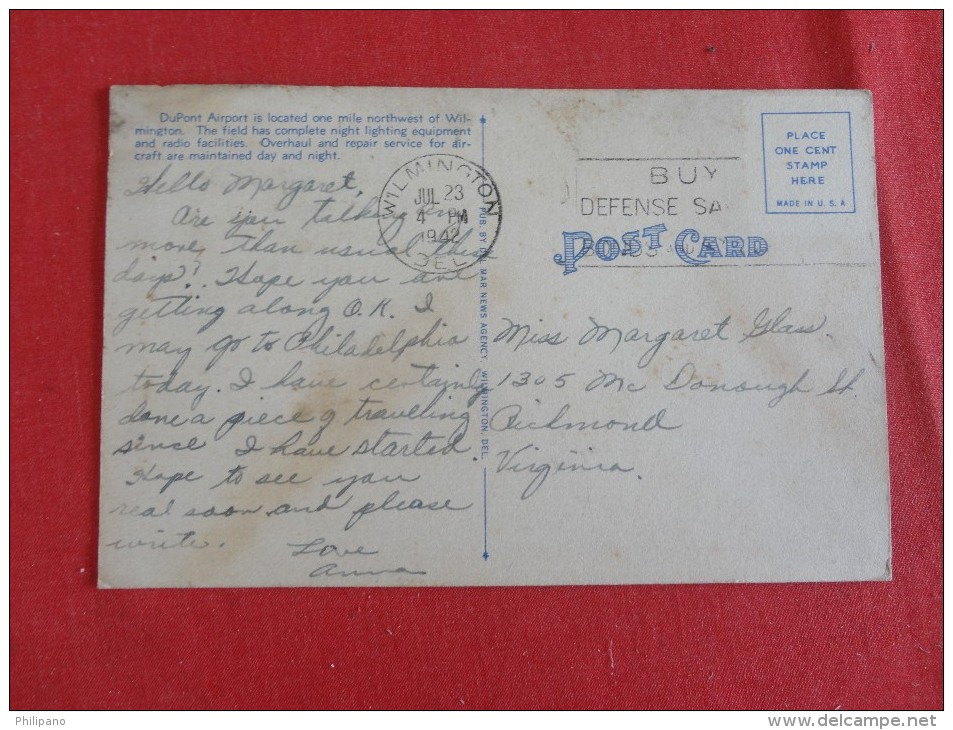 DuPont Airport is located one mile northwest of Wil-
mington. The field has complete night lighting equipment
and radio facilities. Overhaul and repair service for air-
craft are maintained day and night.
Hello Margaret,
Are you talking any
more than usual these
days? Hope you are
getting along O.K. I
may go to Philadelphia
today. I have certainly
done a piece of traveling
since I have started.
Hope to see you
real soon and please
write.
Love
Anna
WILMINGTON
JUL 23
4 PM
1942
DEL
PUB. BY DEL MAR NEWS AGENCY, WILMINGTON, DEL.
BUY
DEFENSE SA
BONDS
PLACE
ONE CENT
STAMP
HERE
MADE IN U. S. A
POST CARD
Miss Margaret Glass.
1305 Mc Donough St.
Richmond
Virginia.
Philipano
www.delcampe.net